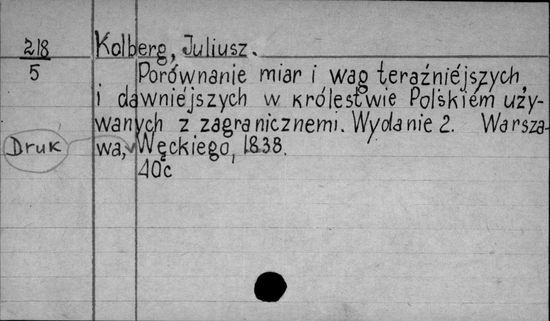 218
5
Kolberg, Juliusz.
Porównanie miar i wag teraźniéjszych,
i dawniéjszych w królestwie Polskiém uży-
wanych z zagranicznemi. Wydanie 2. Warsza-
Druk
wa, Węckiego, 1838.
40c